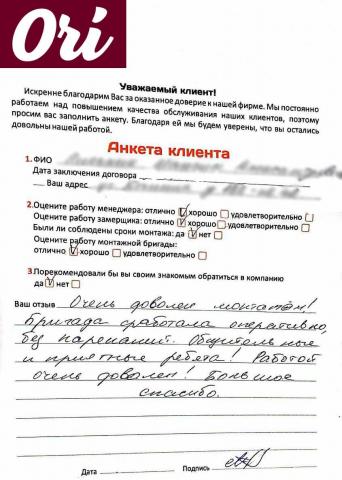 Ori
Уважаемый клиент!
Искренне благодарим Вас за оказанное доверие к нашей фирме. Мы постоянно
работаем над повышением качества обслуживания наших клиентов, поэтому
просим вас заполнить анкету. Благодаря ей мы будем уверены, что вы остались
довольны нашей работой.
Анкета клиента
1. ФИО
Дата заключения договора
Ваш адрес
2.Оцените работу менеджера: отлично хорошо удовлетворительно
Оцените работу замерщика: отлично хорошо удовлетворительно
Были ли соблюдены сроки монтажа: да нет
Оцените работу монтажной бригады:
отлично хорошо удовлетворительно
3.Порекомендовали бы вы своим знакомым обратиться в компанию
да нет
Ваш отзыв Очень доволен монтажом!
Бригада сработала оперативно,
без нареканий. Общительные
и приятные ребята! Работой
очень доволен! Большое
спасибо.
Дата Подпись